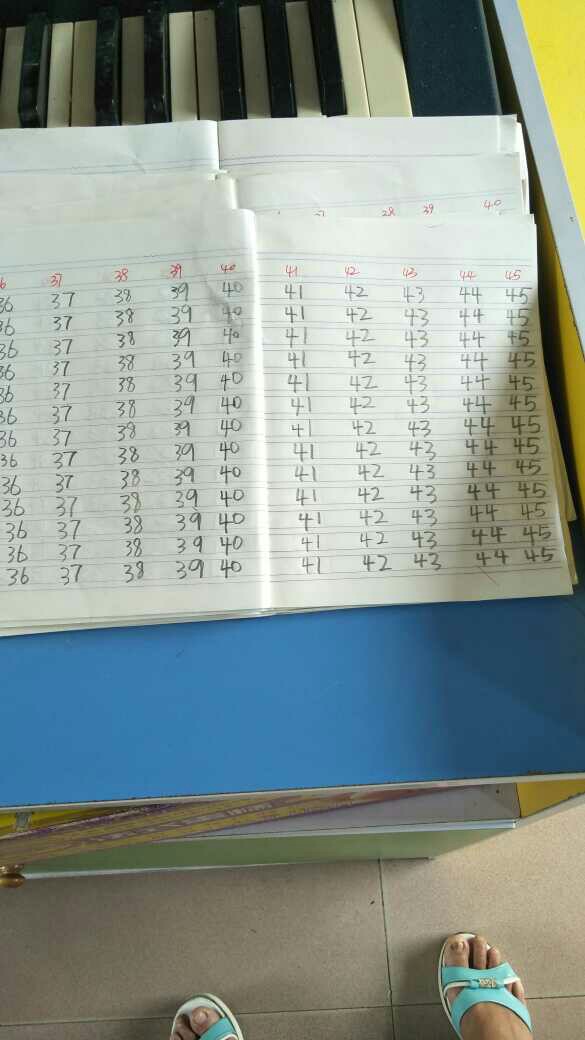 38 39 40
6 37 38 39 40 41 42 43 44 45
36 37 38 39 40 41 42 43 44 45
36 37 38 39 40 41 42 43 44 45
36 37 38 39 40 41 42 43 44 45
36 37 38 39 40 41 42 43 44 45
36 37 38 39 40 41 42 43 44 45
36 37 38 39 40 41 42 43 44 45
36 37 38 39 40 41 42 43 44 45
36 37 38 39 40 41 42 43 44 45
36 37 38 39 40 41 42 43 44 45
36 37 38 39 40 41 42 43 44 45
36 37 38 39 40 41 42 43 44 45
36 37 38 39 40 41 42 43 44 45
36 37 38 39 40 41 42 43 44 45